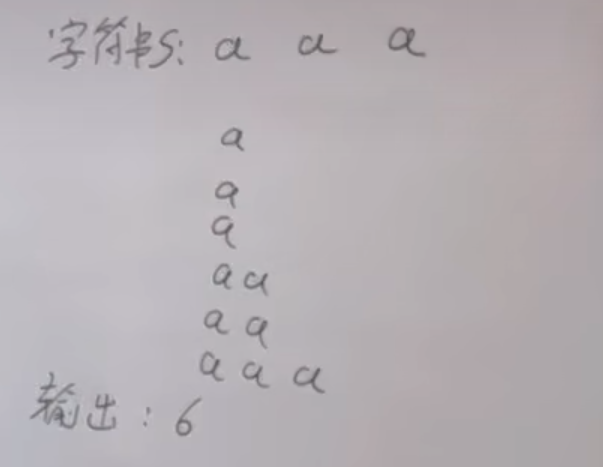 字符串S: a a a
a
a
a
a a
a a
a a a
输出: 6